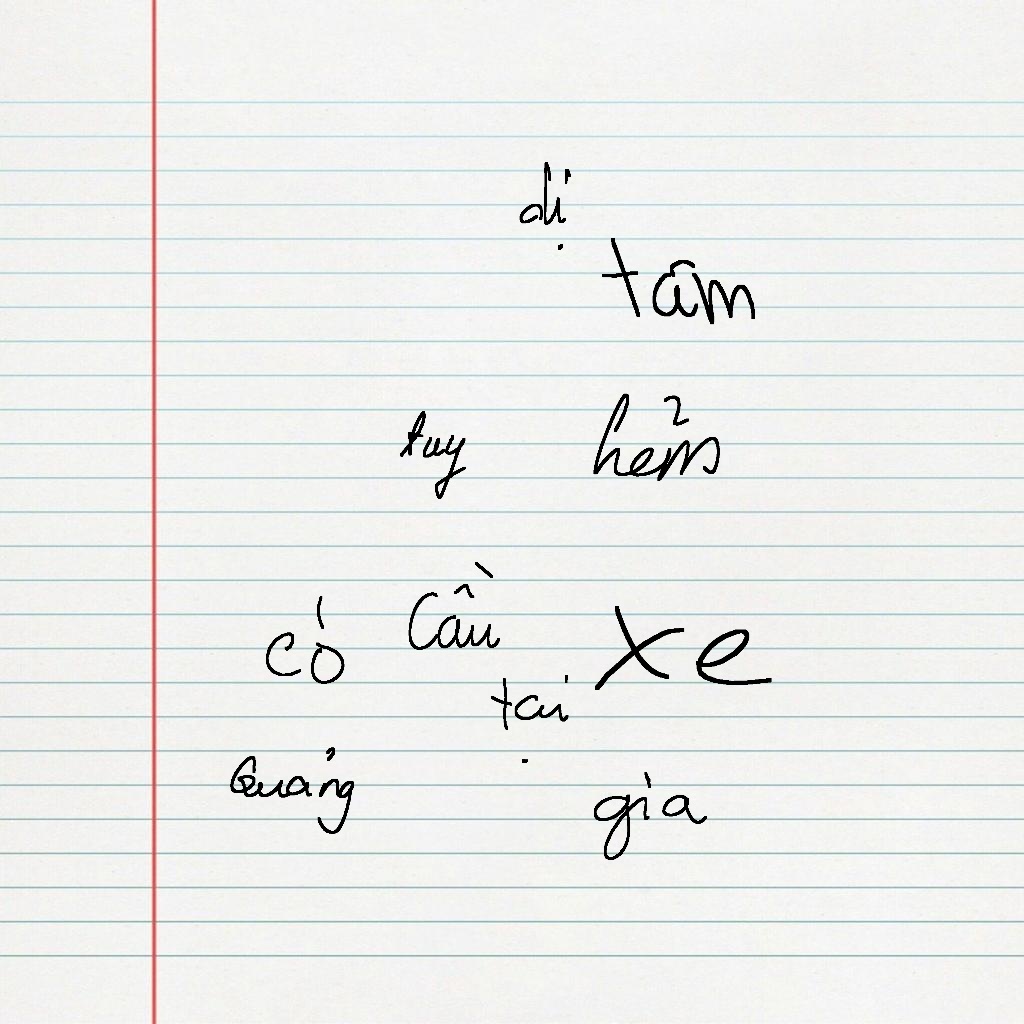 dị
tâm
tuy hẻm
có Cầu xe
tại
Quảng gia